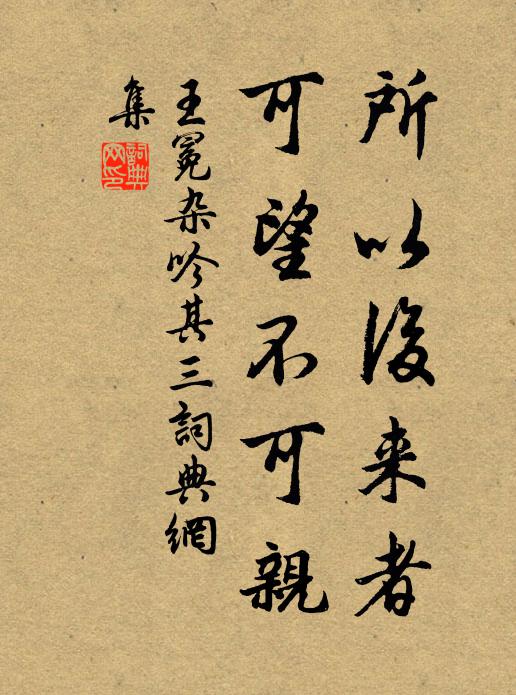 所以後来者
可望不可親
王冕杂吟其三詞典網
集
詞典网印